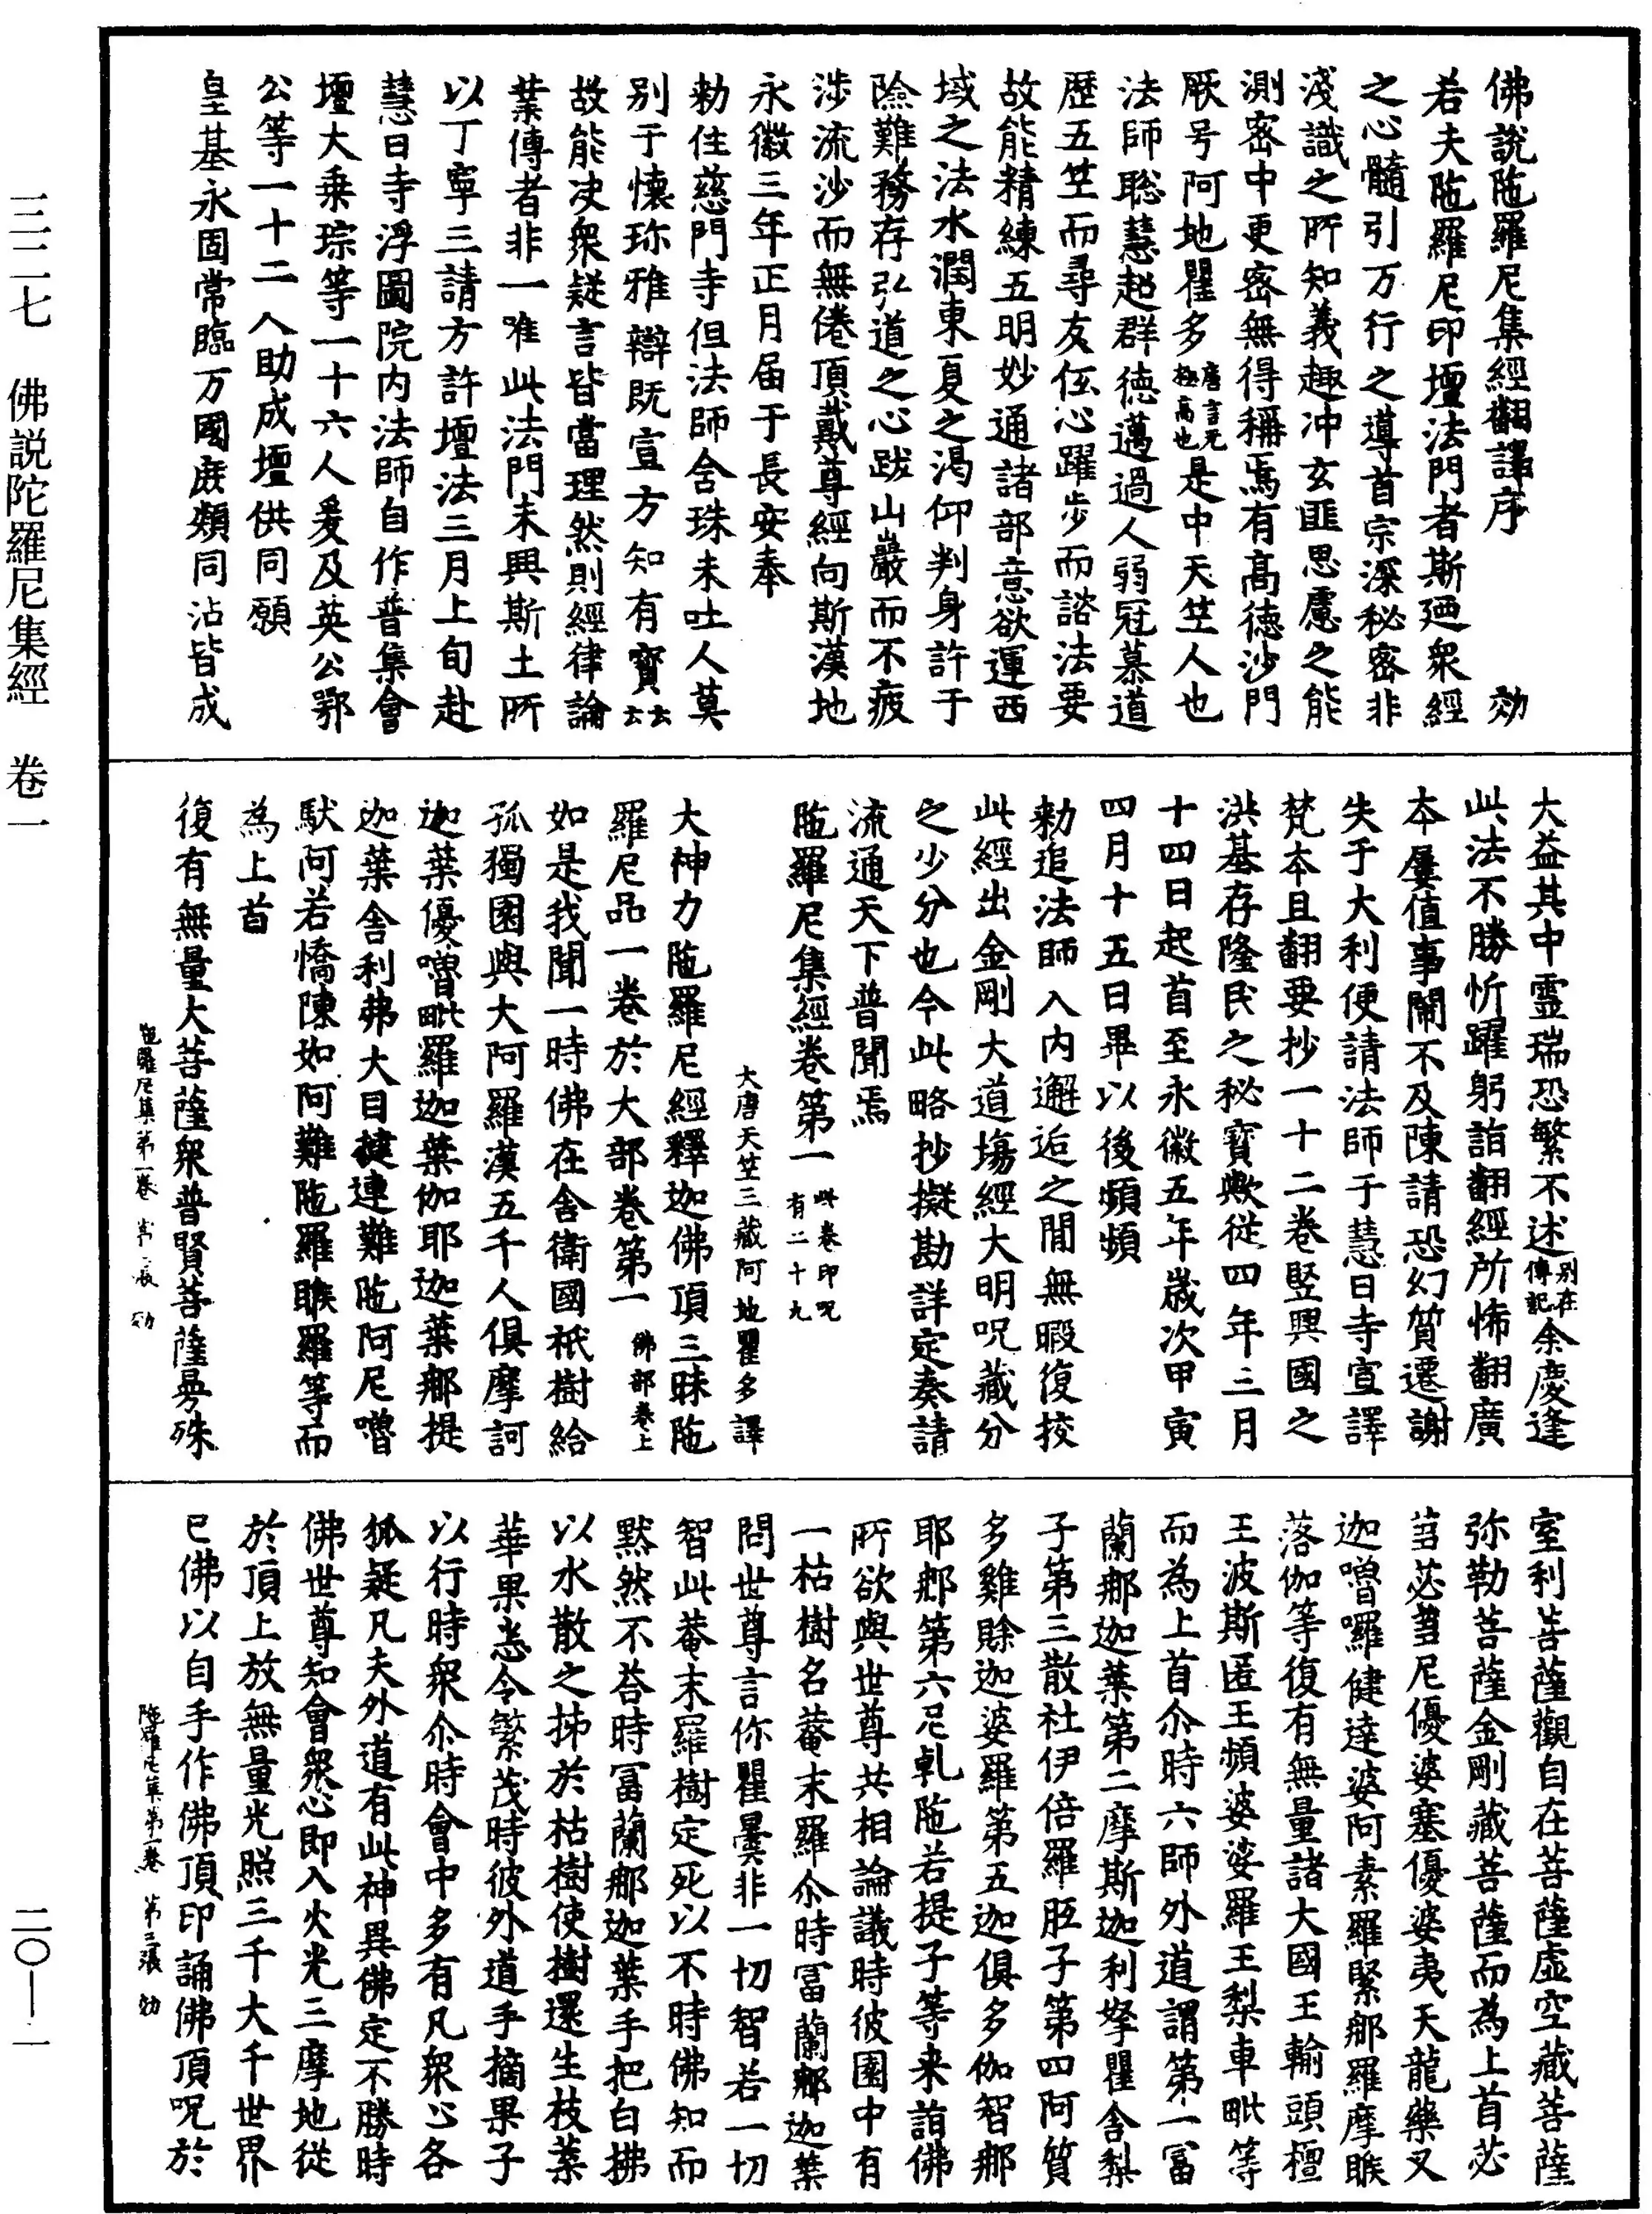 佛說陁羅尼集經翻譯序　効
若夫陁羅尼印壇法門者斯廼衆經
之心髓引万行之導首宗深秘密非
淺識之所知義趣冲玄匪思慮之能
測密中更密無得稱焉有高德沙門
厥号阿地瞿多唐言无極高也是中天竺人也
法師聡慧超群德邁過人弱冠慕道
歷五竺而尋友伍心躍步而諮法要
故能精練五明妙通諸部意欲運西
域之法水潤東夏之渴仰判身許于
險難務存弘道之心跋山巖而不疲
涉流沙而無倦頂戴尊經向斯漢地
永徽三年正月届于長安奉
勑住慈門寺但法師含珠未吐人莫
别于懷珎雅辯既宣方知有寳云云
故能决衆疑言皆當理然則經律論
業傳者非一唯此法門未興斯土所
以丁寧三請方許壇法三月上旬赴
慧日寺浮圖院内法師自作普集會
壇大乘琮等一十六人爰及英公鄂
公等一十二人助成壇供同願
皇基永固常臨万國庶類同沾皆成
大益其中霊瑞恐繁不述别在傳記余慶逢
此法不勝忻躍躬詣翻經所悕翻廣
本屢值事鬧不及陳請恐幻質遷謝
失于大利便請法師于慧日寺宣譯
梵本且翻要抄一十二卷竪興國之
洪基存隆民之秘寳歟從四年三月
十四日起首至永徽五年歲次甲寅
四月十五日畢以後頻頻
勑追法師入内邂逅之間無暇復挍
此經出金剛大道塲經大明呪藏分
之少分也今此略抄擬勘詳定奏請
流通天下普聞焉
陁羅尼集經卷第一　此卷印呪有二十九
大唐天竺三藏阿地瞿多譯
大神力陁羅尼經釋迦佛頂三昧陁
羅尼品一卷於大部卷第一　佛部卷上
如是我聞一時佛在舍衛國祇樹給
孤獨園與大阿羅漢五千人俱摩訶
迦葉優嚕毗羅迦葉伽耶迦葉那提
迦葉舍利弗大目揵連難陁阿尼嚕
馱阿若憍陳如阿難陁羅睺羅等而
為上首
復有無量大菩薩衆普賢菩薩曼殊
陁羅尼集第一卷　第二張　効
室利菩薩觀自在菩薩虛空藏菩薩
弥勒菩薩金剛藏菩薩而為上首苾
芻苾芻尼優婆塞優婆夷天龍藥叉
迦嚕囉健達婆阿素羅緊那羅摩睺
落伽等復有無量諸大國王輸頭檀
王波斯匿王頻婆娑羅王梨車毗等
而為上首尒時六師外道謂第一冨
蘭那迦葉第二摩斯迦利拏瞿舍梨
子第三散社伊倍羅胝子第四阿質
多雞賒迦婆羅第五迦俱多伽智那
耶那第六尼乹陁若提子等来詣佛
所欲與世尊共相論議時彼園中有
一枯樹名菴末羅尒時冨蘭那迦葉
問世尊言你瞿曇非一切智若一切
智此菴末羅樹定死以不時佛知而
默然不荅時冨蘭那迦葉手把白拂
以水散之抪於枯樹使樹還生枝葉
華果悉令繁茂時彼外道手摘果子
以行時衆尒時會中多有凡衆心各
狐疑凡夫外道有此神異佛定不勝時
佛世尊知會衆心即入火光三摩地從
於頂上放無量光照三千大千世界
已佛以自手作佛頂印誦佛頂呪於
陁羅尼集第一卷　第三張　効
三二七　佛説陀羅尼集經　卷一
二〇—一